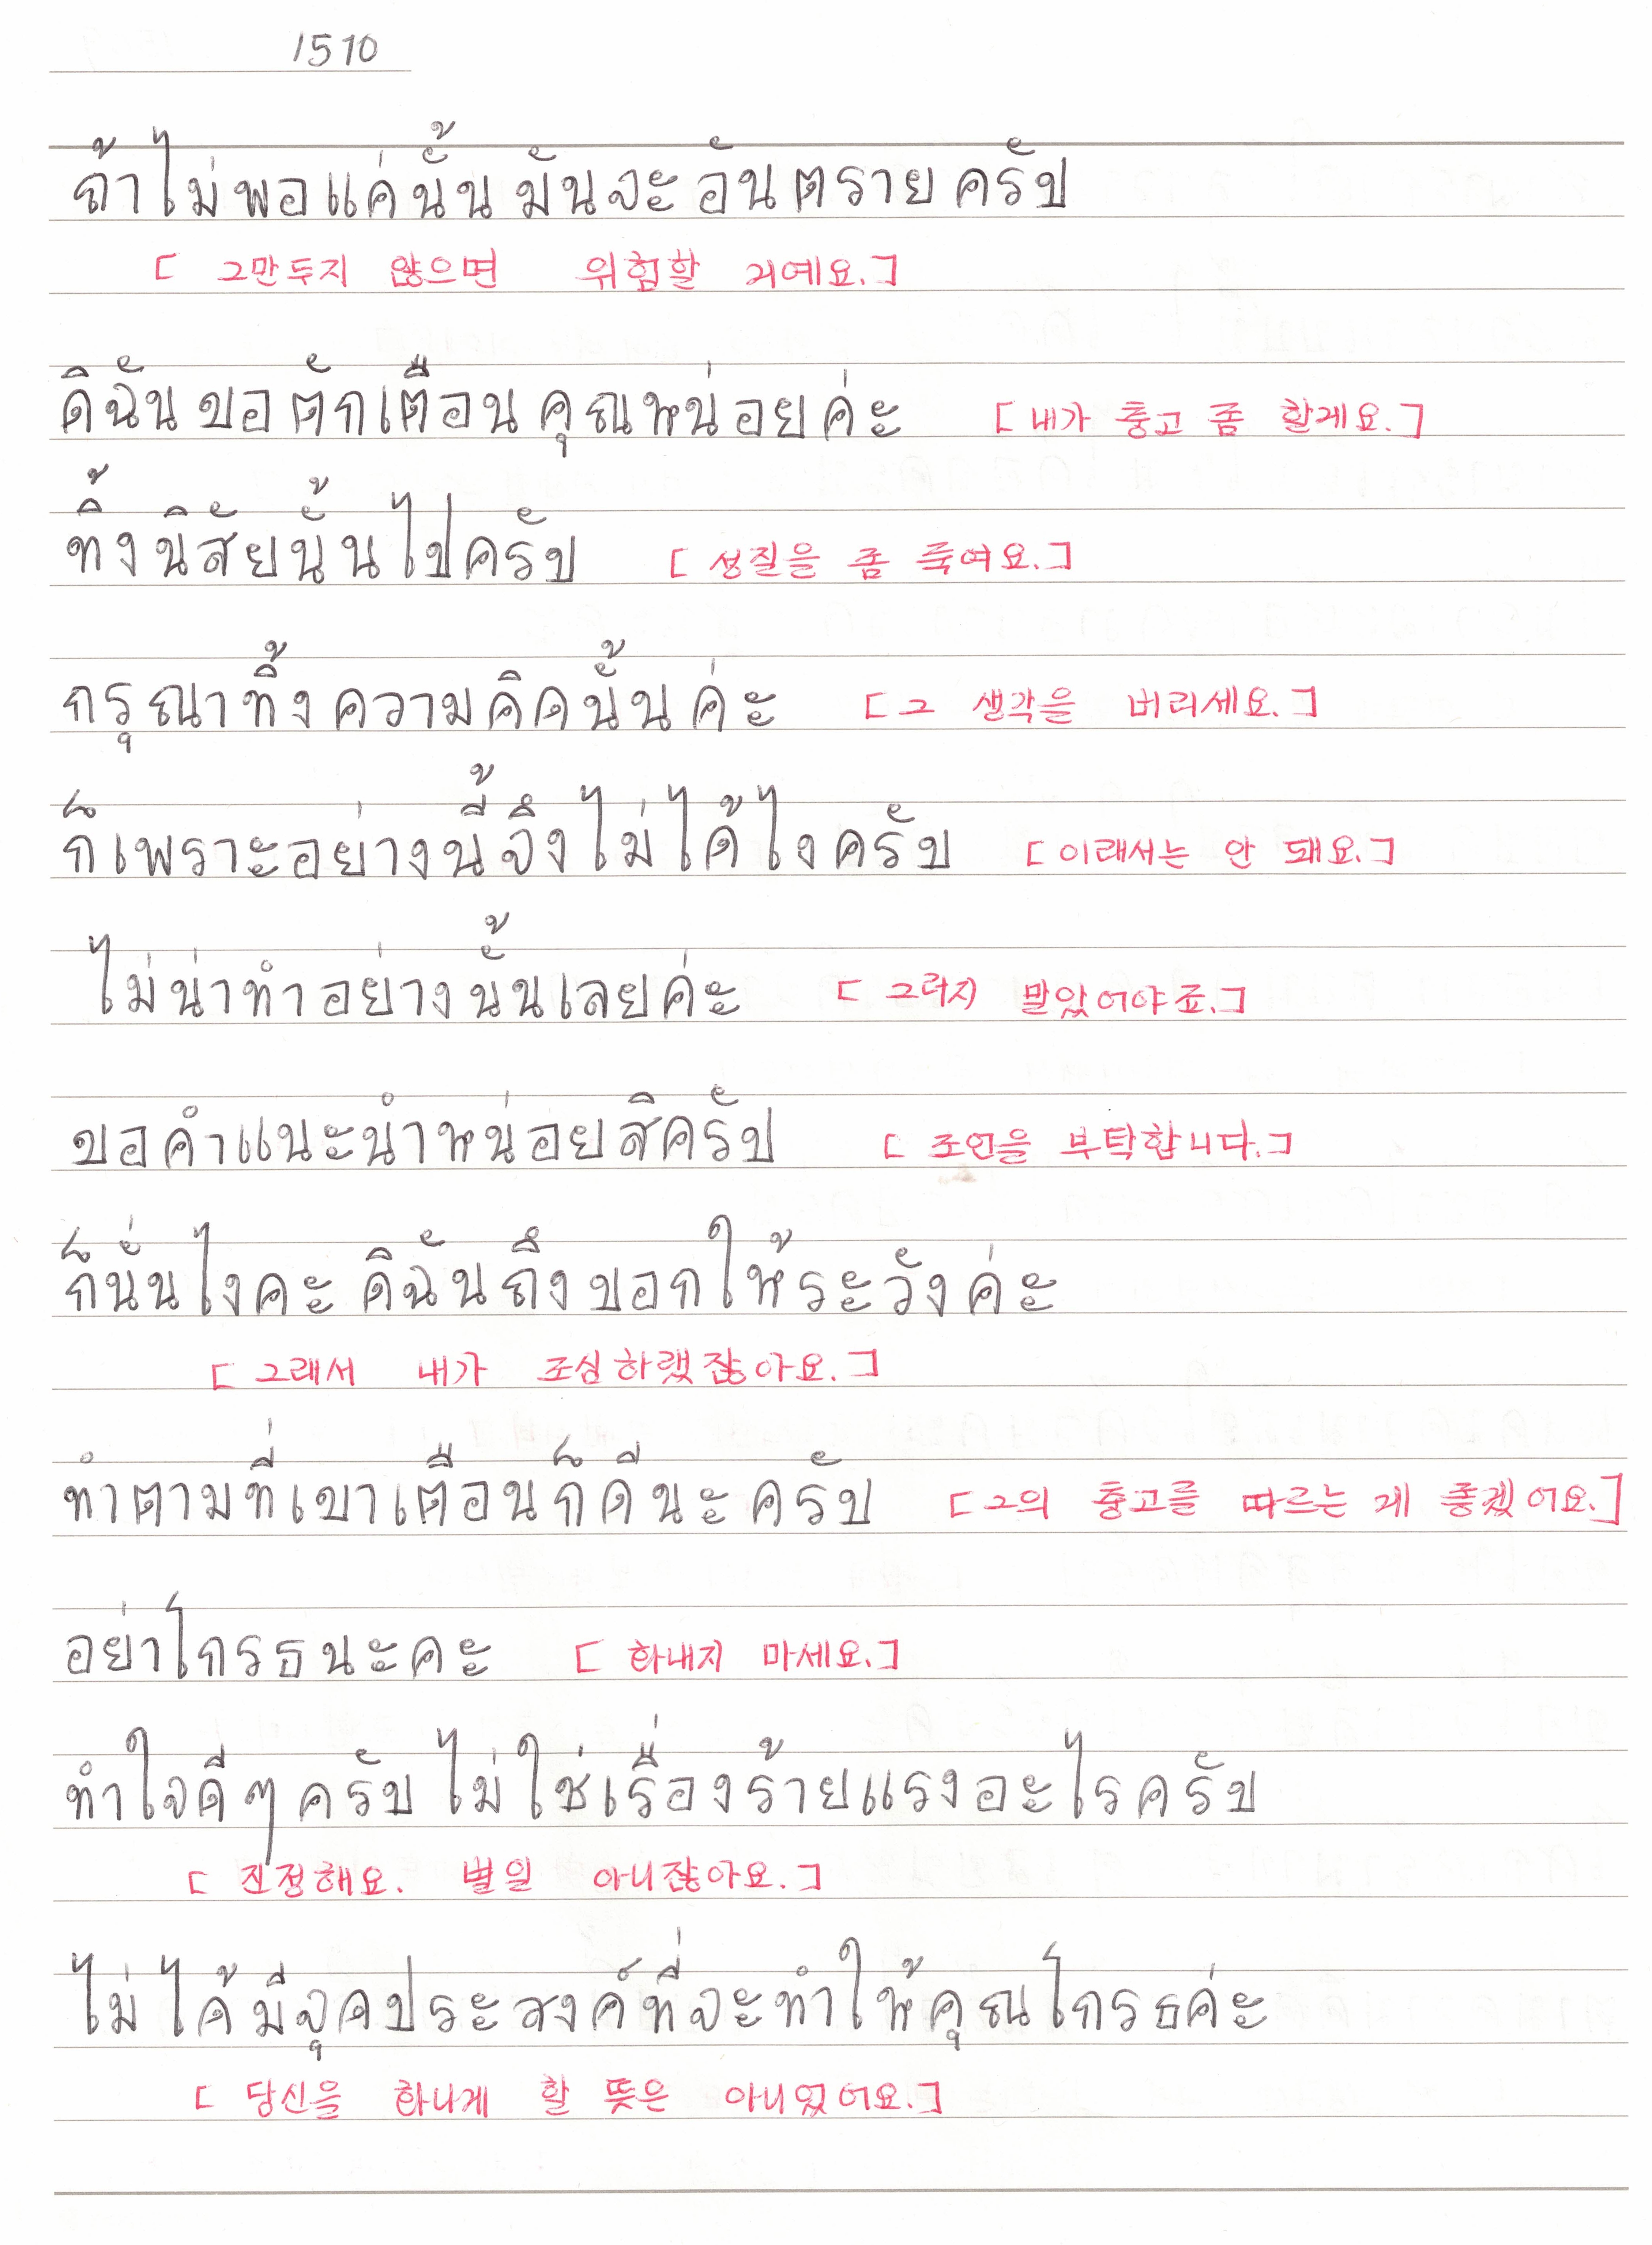 1510
ถ้าไม่พอแค่นั้นมันจะอันตรายครับ
[ 그만두지 않으면 위험할 거예요.]
ดิฉันขอตักเตือนคุณหน่อยค่ะ [ 내가 충고 좀 할게요.]
ทิ้งนิสัยนั้นไปครับ [ 성질을 좀 죽여요.]
กรุณาทิ้งความคิดนั้นค่ะ [ 그 생각을 버리세요.]
ก็เพราะอย่างนี้จึงไม่ได้ไงครับ [ 이래서는 안 돼요.]
ไม่น่าทำอย่างนั้นเลยค่ะ [ 그러지 말았어야죠.]
ขอคำแนะนำหน่อยสิครับ [ 조언을 부탁합니다.]
ก็นั่นไงคะ ดิฉันถึงบอกให้ระวังค่ะ
[ 그래서 내가 조심하랬잖아요.]
ทำตามที่เขาเตือนก็ดีนะครับ [ 그의 충고를 따르는 게 좋겠어요.]
อย่าโกรธนะคะ [ 화내지 마세요.]
ทำใจดีๆครับ ไม่ใช่เรื่องร้ายแรงอะไรครับ
[ 진정해요. 별일 아니잖아요.]
ไม่ได้มีจุดประสงค์ที่จะทำให้คุณโกรธค่ะ
[ 당신을 화나게 할 뜻은 아니었어요.]